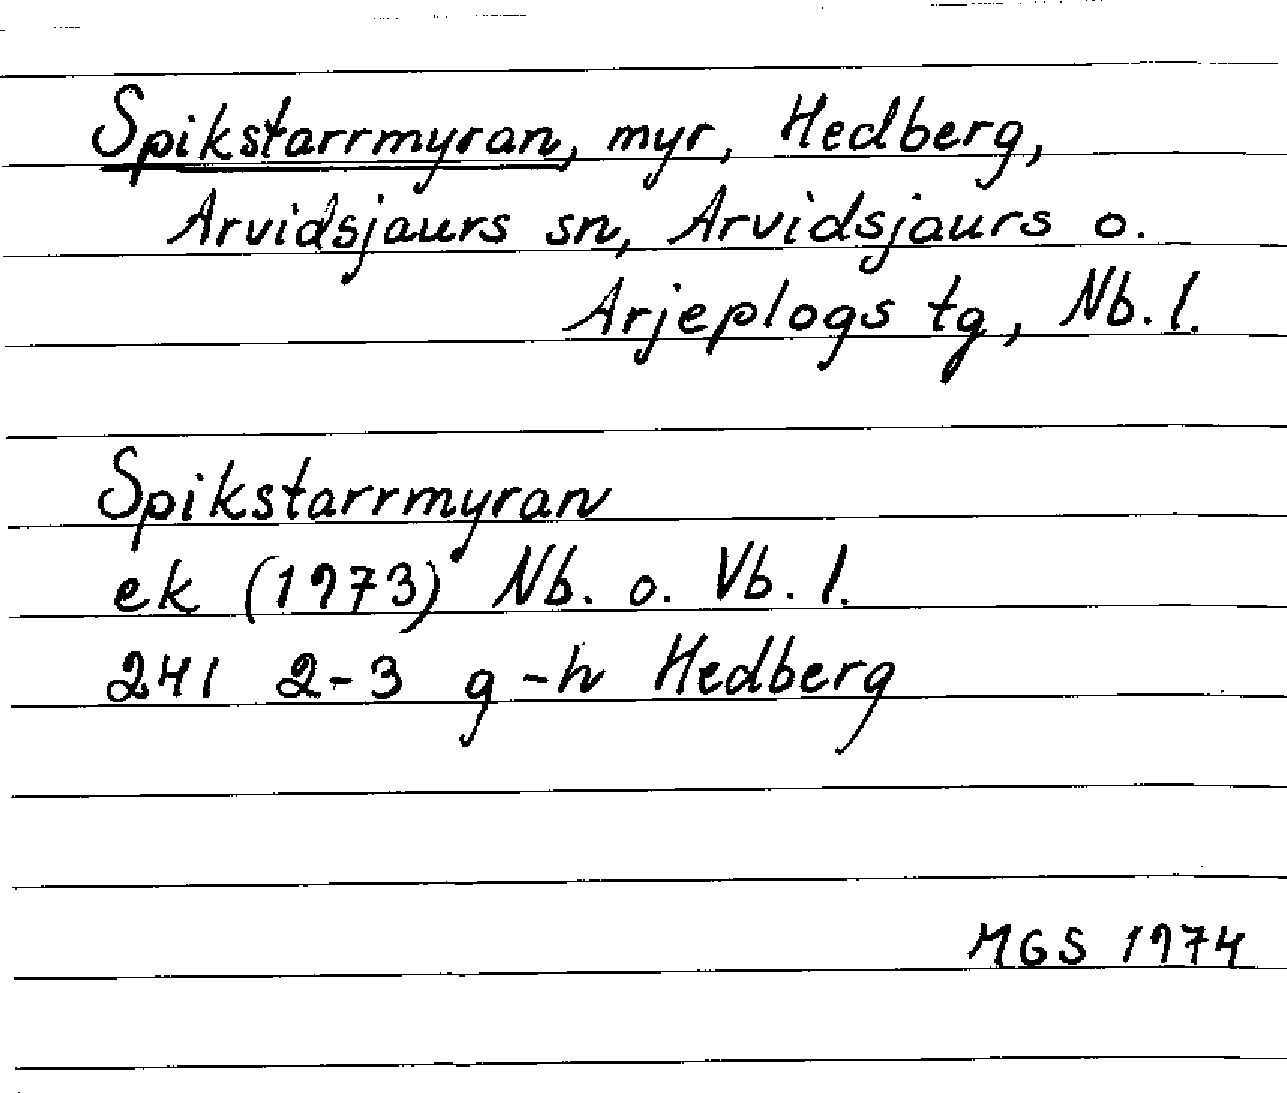 Spikstarrmyran, myr, Hedberg,
Arvidsjaurs sn, Arvidsjaurs o.
Arjeplogs tg, Nb. l.
Spikstarrmyran
ek (1973) Nb. o. Vb. l.
241 2-3 g-h Hedberg
MGS 1974